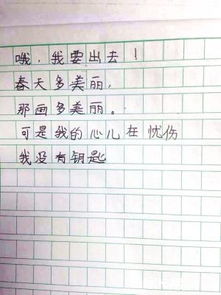 哦，我要出去！
春天多美丽，
那画多美丽。
可是我的心儿在忧伤
我没有钥匙